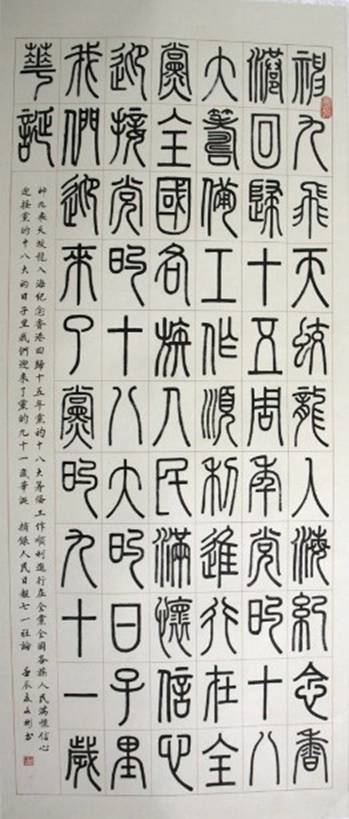 神九飛天蛟龍入海紀念香
港回歸十五周年党的十八
大籌備工作順利進行在全
黨全國各族人民滿懷信心
迎接党的十八大的日子里
我們迎來了黨的九十一歲
華誕
神九飛天蛟龍入海紀念香港回歸十五年黨的十八大籌備工作順利進行在全黨全國各族人民滿懷信心
迎接黨的十八大的日子里我們迎來了黨的九十一歲華誕 摘錄人民日報七一社論 壬辰夏文彬书